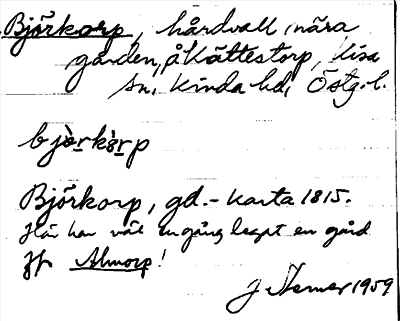 Björkorp, hårdvall nära
gården, å Kättestorp, Kisa
sn, Kinda hd, Östg.l.
bjò̱rkò̱rp
Björkorp, gd. - karta 1815.
Här har väl en gång legat en gård
Jfr Almorp!
J Nemer 1959